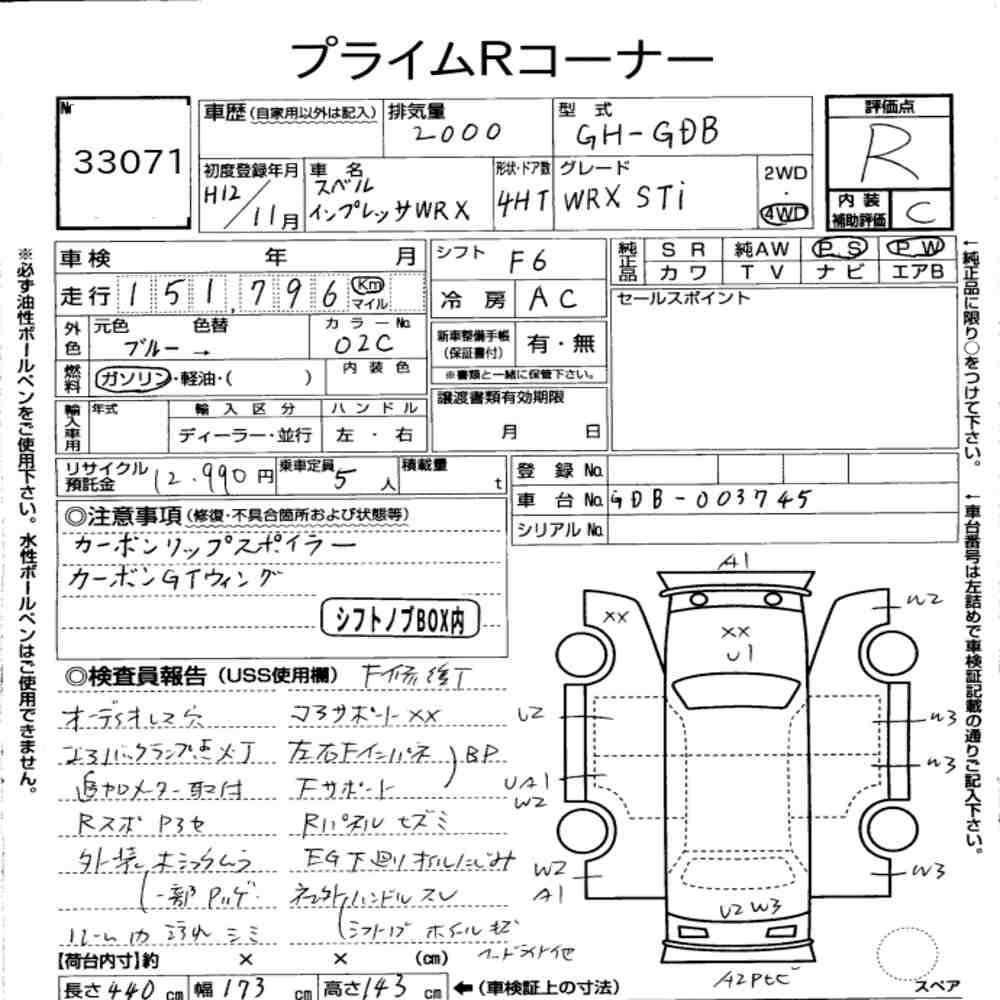 プライムRコーナー
Nr
33071
車歴(自家用以外は記入)
排気量
2000
型 式
GH-GDB
評価点
R
初度登録年月
H12/11月
車 名
スバル
インプレッサWRX
形状・ドア数
4HT
グレード
WRX STi
2WD
・
4WD
内 装
補助評価
C
車検 年 月
シフト F6
純正品
SR 純AW PS PW
カワ TV ナビ エアB
走行 151,796 Km
マイル
冷房 AC
セールスポイント
外色
元色 色替
ブルー →
カラーNo.
02C
新車整備手帳
(保証書付)
有・無
※書類と一緒に保管下さい。
燃料
ガソリン・軽油・( )
内装色
輸入車用
年式
輸入区分
ディーラー・並行
ハンドル
左・右
譲渡書類有効期限
月 日
リサイクル
預託金
12.990円
乗車定員
5人
積載量
t
登録No.
車台No. GDB-003745
シリアルNo.
◎注意事項(修復・不具合箇所および状態等)
カーボンリップスポイラー
カーボンGTウィング
シフトノブBOX内
◎検査員報告(USS使用欄) F修復了
オーディオレス穴
コアサポートXX
左右Fインパネ
BP
追加メーター取付
Fサポート
Rスポ P3セ
Rパネル
EG下廻りオイルにじみ
ハンドルスレ
【荷台内寸】約 × × (cm)
長さ440cm
幅173cm
高さ143cm
←(車検証上の寸法)
A1
XX
XX
U1
W2
U2
W3
W3
UA1
W2
W2
A1
W3
U2 W3
スペア
※必ず油性ボールペンをご使用下さい。水性ボールペンはご使用できません。
←純正品に限り○をつけて下さい。
←車台番号は左詰めで車検証記載の通りご記入下さい。